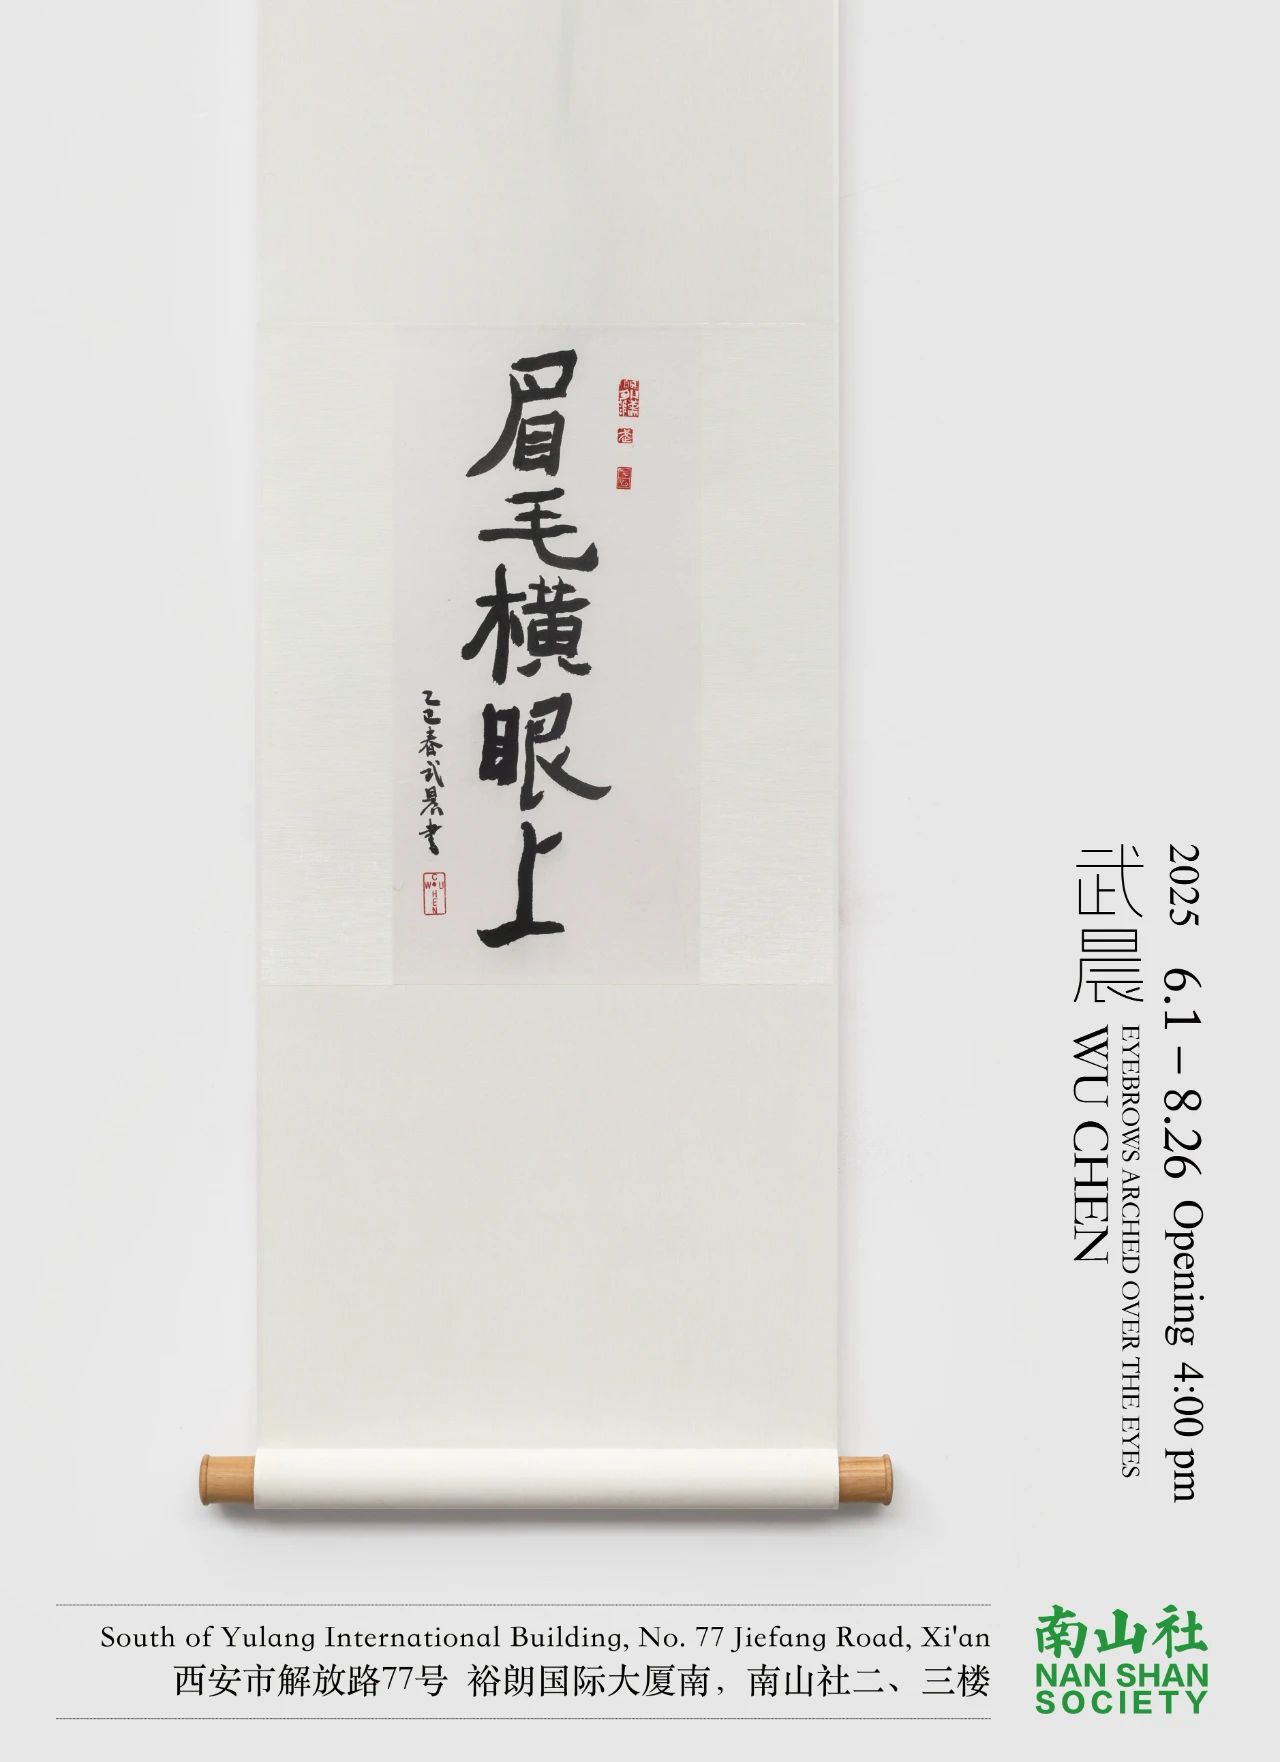 眉毛橫眼上
乙巳春武晨書
WU CHEN
武晨
WU CHEN
EYEBROWS ARCHED OVER THE EYES
2025 6.1 – 8.26 Opening 4:00 pm
South of Yulang International Building, No. 77 Jiefang Road, Xi'an
西安市解放路77号 裕朗国际大厦南，南山社二、三楼
南山社
NAN SHAN
SOCIETY